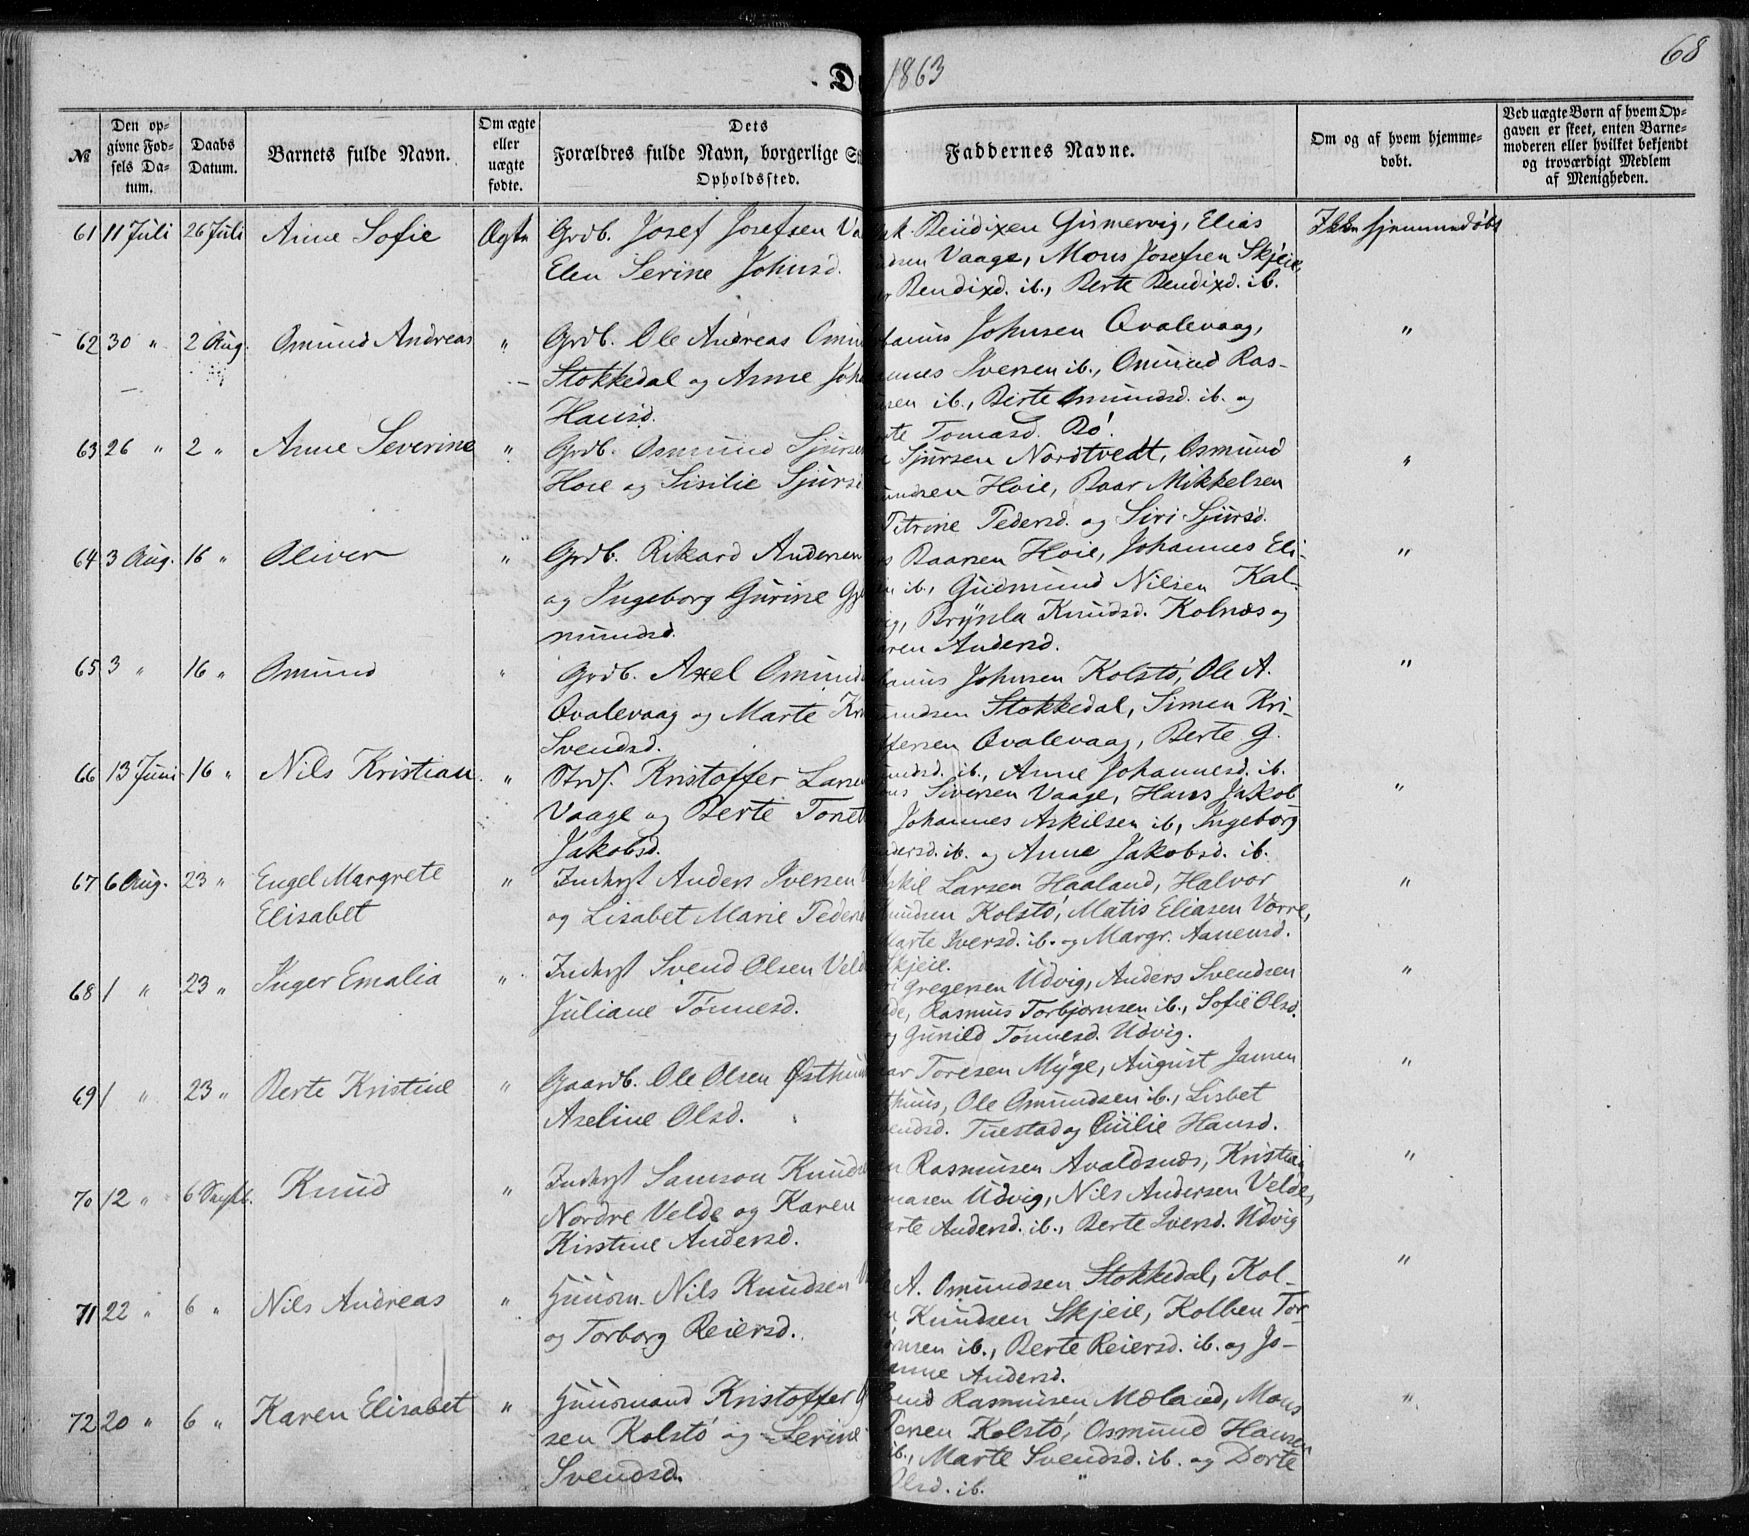 68
D
1863
№
Den opgivne Fødsels Datum.
Daabs Datum.
Barnets fulde Navn.
Om ægte eller uægte fødte.
Dets
Forældres fulde Navn, borgerlige S
Opholdssted.
Faddernes Navne.
Om og af hvem hjemmedøbt.
Ved uægte Børn af hvem Opgaven er skeet, enten Barnemoderen eller hvilket bekjendt og troværdigt Medlem af Menigheden.
61 11 Juli 26 Juli Anne Sofie Ægte Grdb. Josef Josefsen Va
Elen Serine Johnsd.
Bendixen Gismervig, Elias
Vaage, Mons Josefsen Skjeie,
Bendixd. ib., Berte Bendixd. ib.
Ikke hjemmedøbt
62 30 " 2 Aug. Omund Andreas " Grdb. Ole Andreas Omun
Stokkedal og Anne Joha
Hansd.
Johnsen Qvalevaag,
Iversen ib., Omund Ras-
sen ib., Berte Omundsd. ib. og
Tomasd. Bø.
"
63 26 " 2 " Anne Severine " Grdb. Osmund Sjursen
Hoie og Sisilie Sjursd
Sjursen Nordtvedt, Osmund
undsen Hoie, Baar Mikkelsen
Petrine Pedersd. og Siri Sjursd.
"
64 3 Aug. 16 " Oliver " Grdb. Rikard Andersen
og Ingeborg Gurine G
mundsd.
Baarsen Hoie, Johannes Eli-
ib., Gudmund Nilsen Kal-
Brynla Knudsd. Kolnæs og
aren Andersd.
"
65 3 " 16 " Omund " Grdb. Axel Omund
Qvalevaag og Marte Kr
Svendsd.
Johnsen Kolstø, Ole A.
undsen Stokkedal, Simen Kri-
ffersen Qvalevaag, Berte G.
undsd. ib., Anne Johannesd. ib.
"
66 13 Juni 16 " Nils Kristian " Strds. Kristoffer Larse
Vaage og Berte Tonet
Jakobsd.
Siversen Vaage, Hans Jakob
Johannes Askilsen ib, Ingeborg
dersd. ib. og Anne Jakobsd. ib.
"
67 6 Aug. 23 " Engel Margrete
Elisabet " Indhyst Anders Iversen
og Lisabet Marie Peders
skil Larsen Haaland, Halvor
nudsen Kolstø, Matis Eliasen Vorre,
Marte Iversd. ib. og Margr. Aanensd.
Skjeie.
"
68 1 " 23 " Inger Emalia " Indhyst Svend Olsen Veld
Juliane Tønnesd.
Gregersen Udvig, Anders Svendsen
de, Rasmus Torbjørnsen ib., Sofie Olsd.
og Gunild Tønnesd. Udvig.
"
69 1 " 23 " Berte Kristine " Gaardb. Ole Olsen Østhuu
Aseline Olsd.
Toresen Myge, August Jansen
thuus, Ole Omundsen ib., Lisbet
vendsd. Tuestad og Emilie Hansd.
"
70 12 " 6 Septb. Knud " Indhyst Samson Knuds
Nordre Velde og Karen
Kirstine Andersd.
Rasmusen Avaldsnæs, Kristian
masen Udvig, Nils Andersen Velde,
arte Andersd. ib., Berte Iversd. Udvig
"
71 22 " 6 " Nils Andreas " Huusm. Nils Knudsen
og Torborg Reiersd.
A. Omundsen Stokkedal, Kol-
Knudsen Skjeie, Kolben Tor-
ørnsen ib., Berte Reiersd. ib. og Jo-
anne Andersd.
"
72 20 " 6 " Karen Elisabet " Huusmand Kristoffer
sen Kolstø og Serine
Svendsd.
vend Rasmusen Mæland, Mons
Persen Kolstø, Osmund Hansen
ib., Marte Svendsd. ib. og Dorte
Olsd. ib.
"